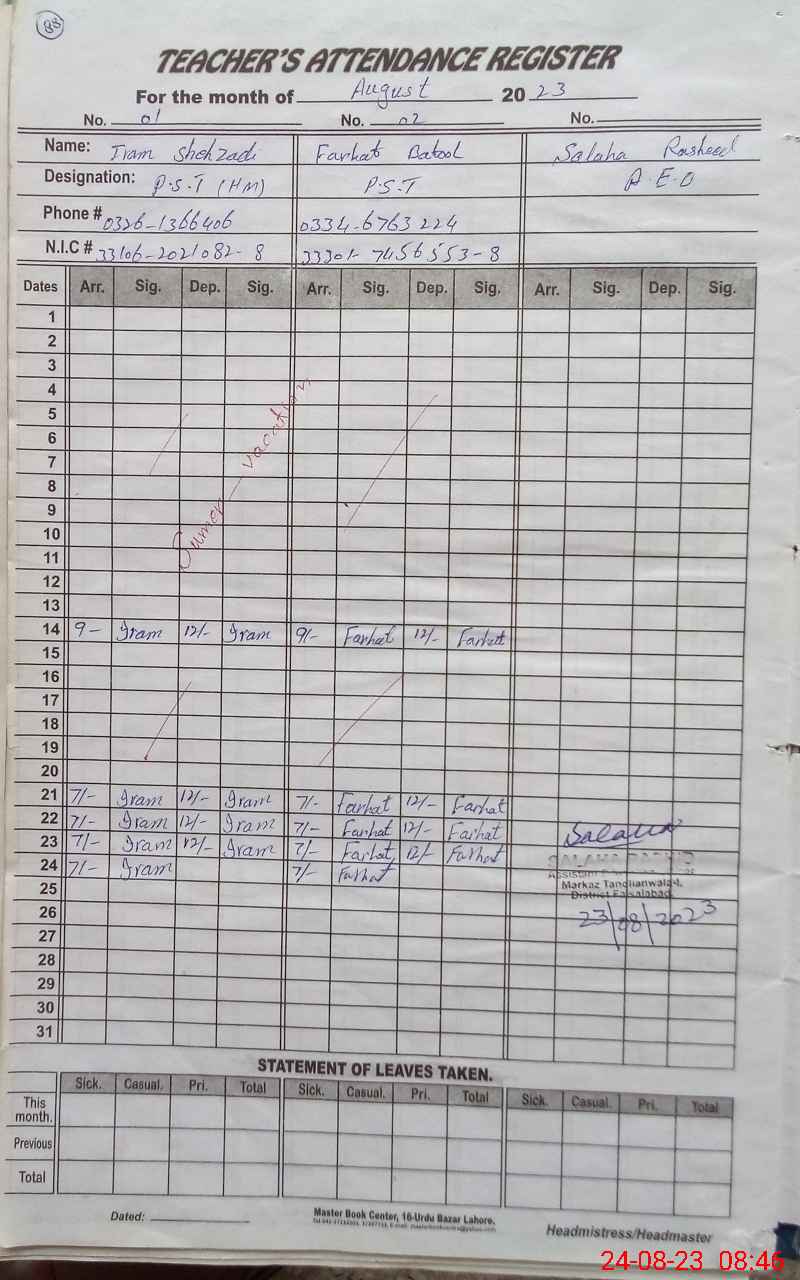 88
TEACHER'S ATTENDANCE REGISTER
For the month of August 2023
No. 01 No. 02 No.
Name: Iram Shehzadi Farhat Batool Salaha Rasheed
Designation: P.S.T (HM) P.S.T A.E.O
Phone # 0326-1366406 0334-6763224
N.I.C # 33106-2021082-8 33301-7456553-8
Dates Arr. Sig. Dep. Sig. Arr. Sig. Dep. Sig. Arr. Sig. Dep. Sig.
1
2
3
4
5
6
7
8
9
10
11
12
13
Sumer vacation
14 9- Iram 12/- Iram 9/- Farhat 12/- Farhat
15
16
17
18
19
20
21 7/- Iram 12/- Iram 7/- Farhat 12/- Farhat
22 7/- Iram 12/- Iram 7/- Farhat 12/- Farhat
23 7/- Iram 12/- Iram 7/- Farhat 12/- Farhat
24 7/- Iram 7/- Farhat
Salaha
Assistant
Markaz Tandlianwala-I,
District Faisalabad.
23/08/2023
25
26
27
28
29
30
31
STATEMENT OF LEAVES TAKEN.
Sick. Casual. Pri. Total Sick. Casual. Pri. Total Sick. Casual. Pri. Total
This month.
Previous
Total
Dated:
Master Book Center, 16-Urdu Bazar Lahore.
Headmistress/Headmaster
24-08-23 08:46